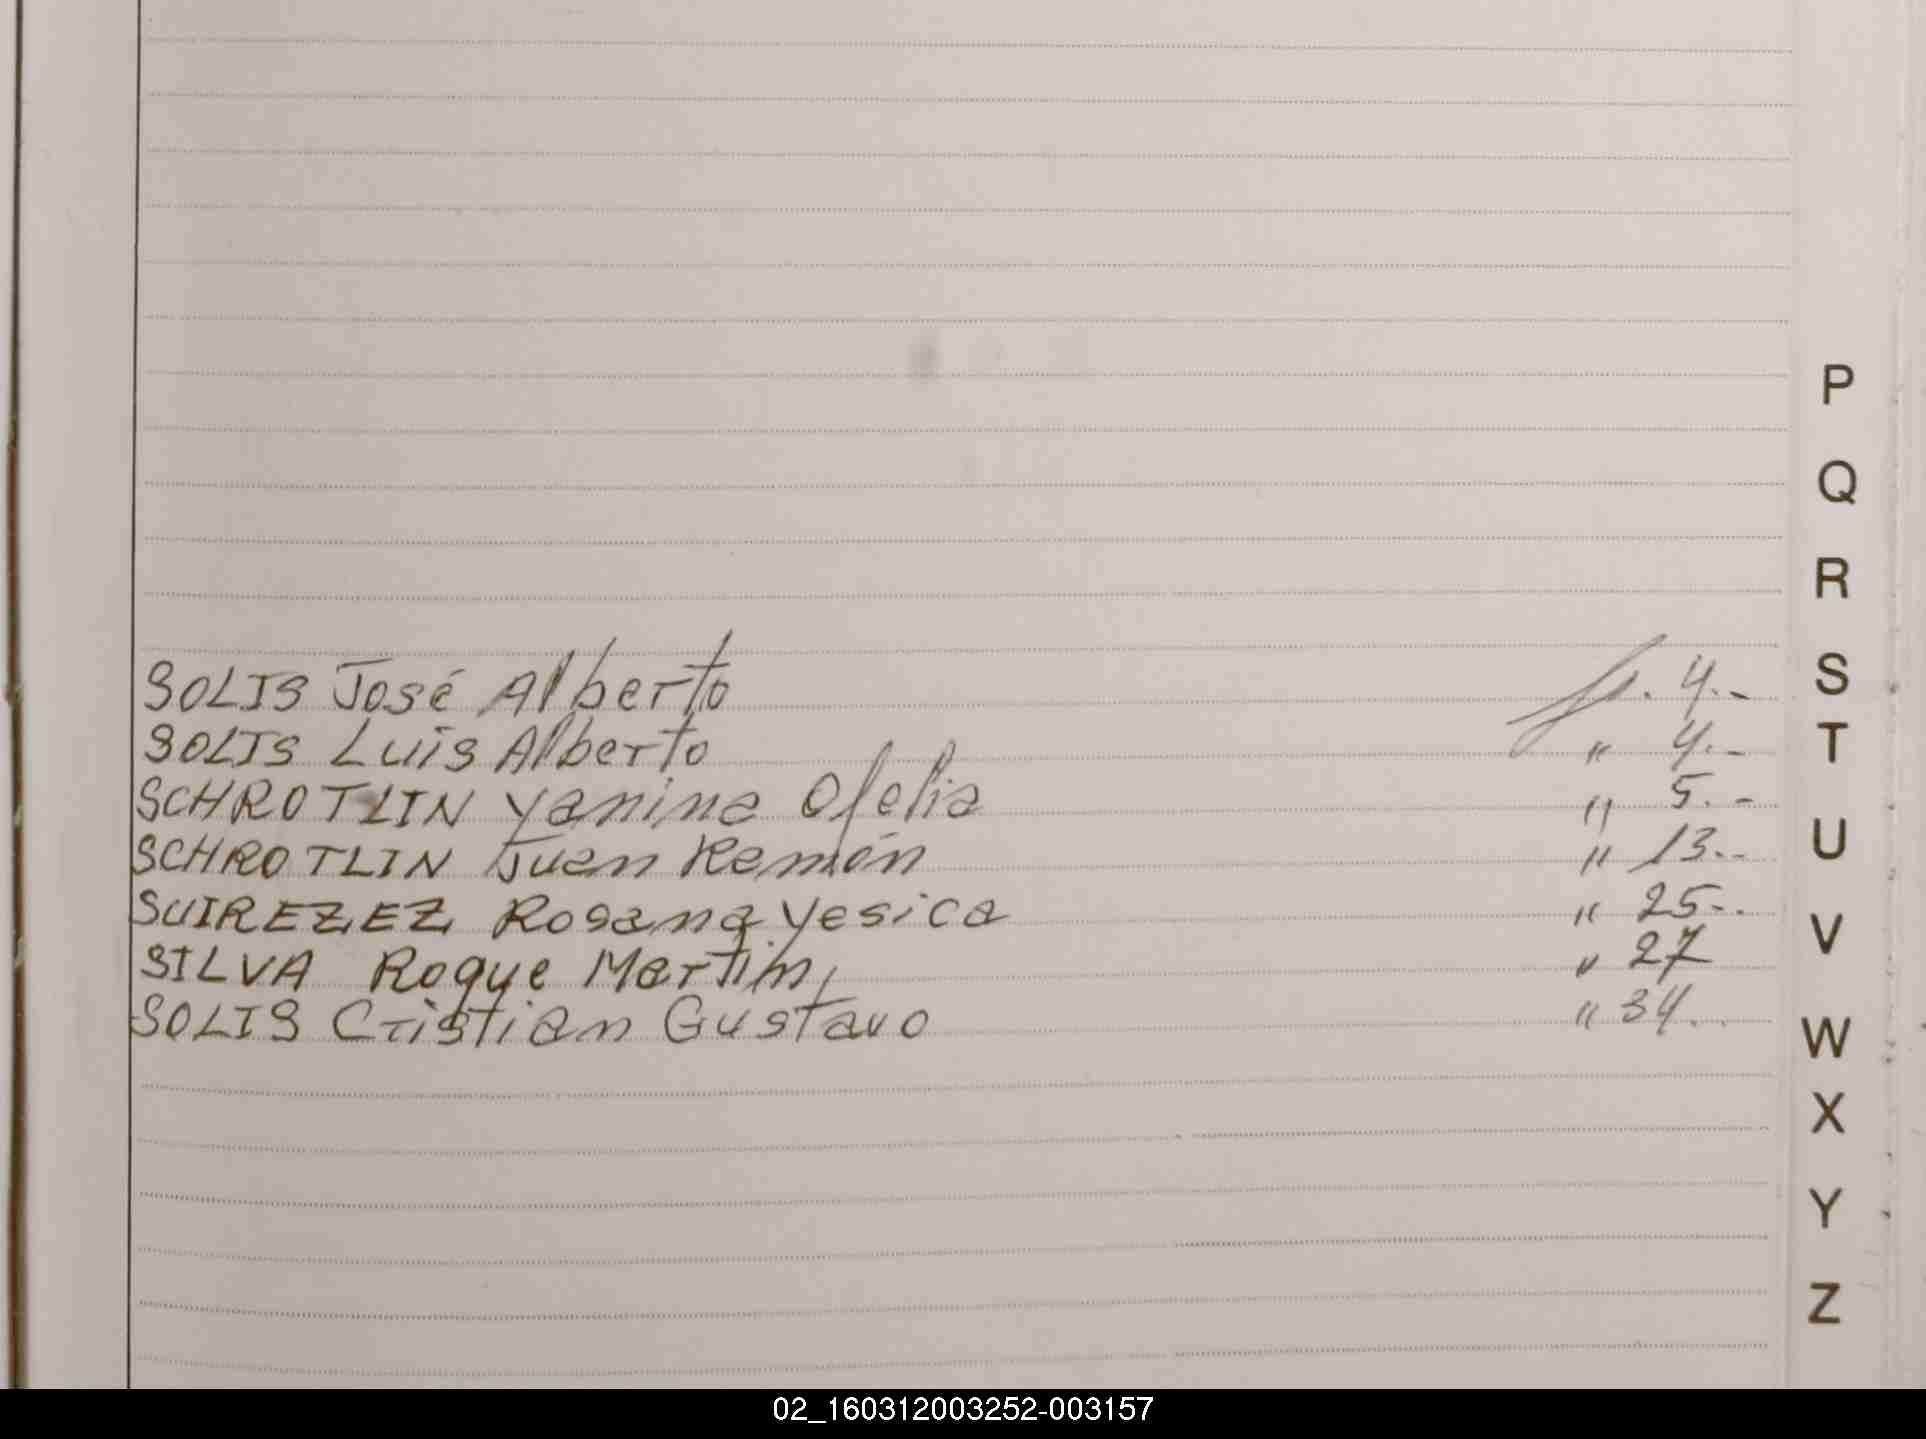 SOLIS José Alberto fl. 4.-
SOLIS Luis Alberto " 4.-
SCHROTLIN Yanina Ofelia " 5.-
SCHROTLIN Juan Ramón " 13.-
SUIREZEZ Rosana Yesica " 25-.
SILVA Roque Martín " 27
SOLIS Cristian Gustavo " 34..
P
Q
R
S
T
U
V
W
X
Y
Z
02_160312003252-003157